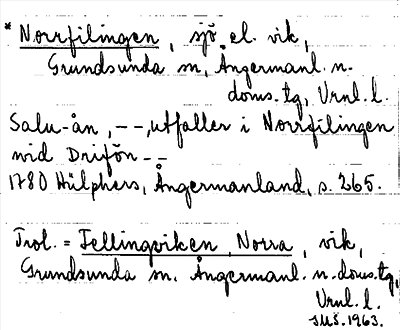 * Norrfilingen, sjö el. vik,
Grundsunda sn, Ångermanl. n.
doms.tg, Vrnl. l.
Salu-ån, --, utfaller i Norrfilingen
vid Drifön --
1780 Hülphers, Ångermanland, s. 265.
Trol. = Fellingviken, Norra, vik,
Grundsunda sn. Ångermanl. n. doms.tg,
Vrnl. l.
SMS. 1963.